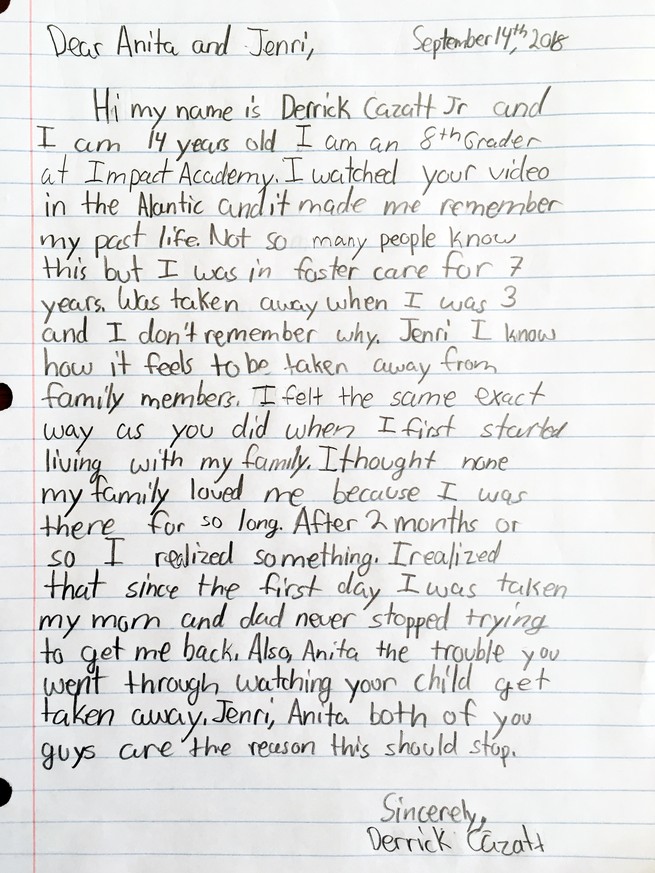 Dear Anita and Jenri, September 14th, 2018
Hi my name is Derrick Cazatt Jr and
I am 14 years old I am an 8th Grader
at Impact Academy. I watched your video
in the Alantic and it made me remember
my past life. Not so many people know
this but I was in foster care for 7
years. Was taken away when I was 3
and I don't remember why. Jenri I know
how it feels to be taken away from
family members. I felt the same exact
way as you did when I first started
living with my family. I thought none
my family loved me because I was
there for so long. After 2 months or
so I realized something. I realized
that since the first day I was taken
my mom and dad never stopped trying
to get me back. Also, Anita the trouble you
went through watching your child get
taken away. Jenri, Anita both of you
guys are the reason this should stop.
Sincerely,
Derrick Cazatt